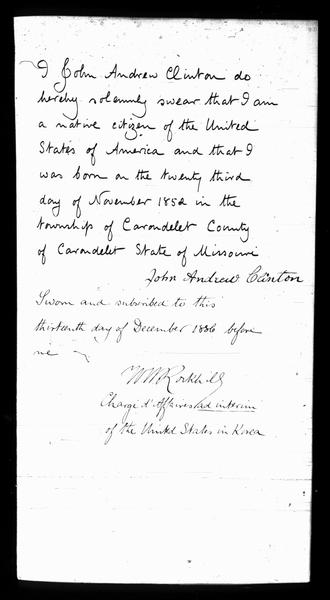 I John Andrew Clinton do
hereby solemnly swear that I am
a native citizen of the United
States of America and that I
was born on the twenty third
day of November 1852 in the
township of Carondelet County
of Carondelet State of Missouri
John Andrew Clinton
Sworn and subscribed to this
thirteenth day of December 1886 before
me
W W Rockhill
Chargé d'Affaires ad interim
of the United States in Korea